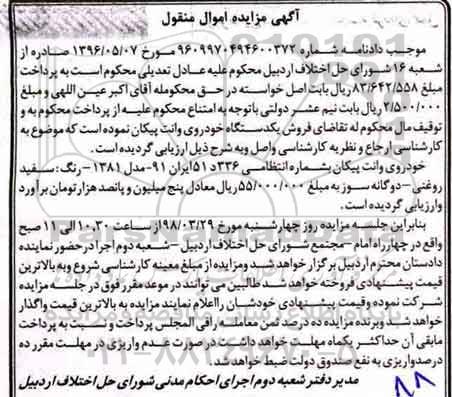 آگهی مزایده اموال منقول
موجب دادنامه شماره ۹۶۰۹۹۷۰۴۹۴۶۰۰۳۷۲ مورخ ۱۳۹۶/۰۵/۰۷ صادره از
شعبه ۱۶ شورای حل اختلاف اردبیل محکوم علیه عادل تعدیلی محکوم است به پرداخت
مبلغ ۸۳/۶۴۲/۵۵۸ ریال بابت اصل خواسته در حق محکوم‌له آقای اکبر عین اللهی و مبلغ
۲/۵۰۰/۰۰۰ ریال بابت نیم عشر دولتی باتوجه به امتناع محکوم علیه از پرداخت محکوم به و
توقیف مال محکوم له تقاضای فروش یکدستگاه خودروی وانت پیکان نموده است که موضوع به
کارشناسی ارجاع و نظریه کارشناسی واصل و به شرح ذیل ارزیابی گردیده است.
خودروی وانت پیکان بشماره انتظامی ۳۳۶د۵۱ ایران ۹۱-مدل ۱۳۸۱-رنگ: سفید
روغنی-دوگانه سوز به مبلغ ۵۵/۰۰۰/۰۰۰ ریال معادل پنج میلیون و پانصد هزار تومان برآورد
وارزیابی گردیده است.
بنابراین جلسه مزایده روز چهارشنبه مورخ ۹۸/۰۳/۲۹ از ساعت ۱۰،۳۰ الی ۱۱ صبح
واقع در چهارراه امام-مجتمع شورای حل اختلاف اردبیل-شعبه دوم اجرا در حضور نماینده
دادستان محترم اردبیل برگزار خواهد شد و مزایده از مبلغ معینه کارشناسی شروع و به بالاترین
قیمت پیشنهادی فروخته خواهد شد طالبین می توانند در موعد مقرر فوق در جلسه مزایده
شرکت نموده و قیمت پیشنهادی خودشان را اعلام نمایند مزایده به بالاترین قیمت واگذار
خواهد شد و برنده مزایده ده درصد ثمن معامله را فی المجلس پرداخت و نسبت به پرداخت
مابقی آن حداکثر یکماه مهلت خواهد داشت در صورت عدم واریزی در مهلت مقرر ده
درصد واریزی به نفع صندوق دولت ضبط خواهد شد.
مدیر دفتر شعبه دوم اجرای احکام مدنی شورای حل اختلاف اردبیل